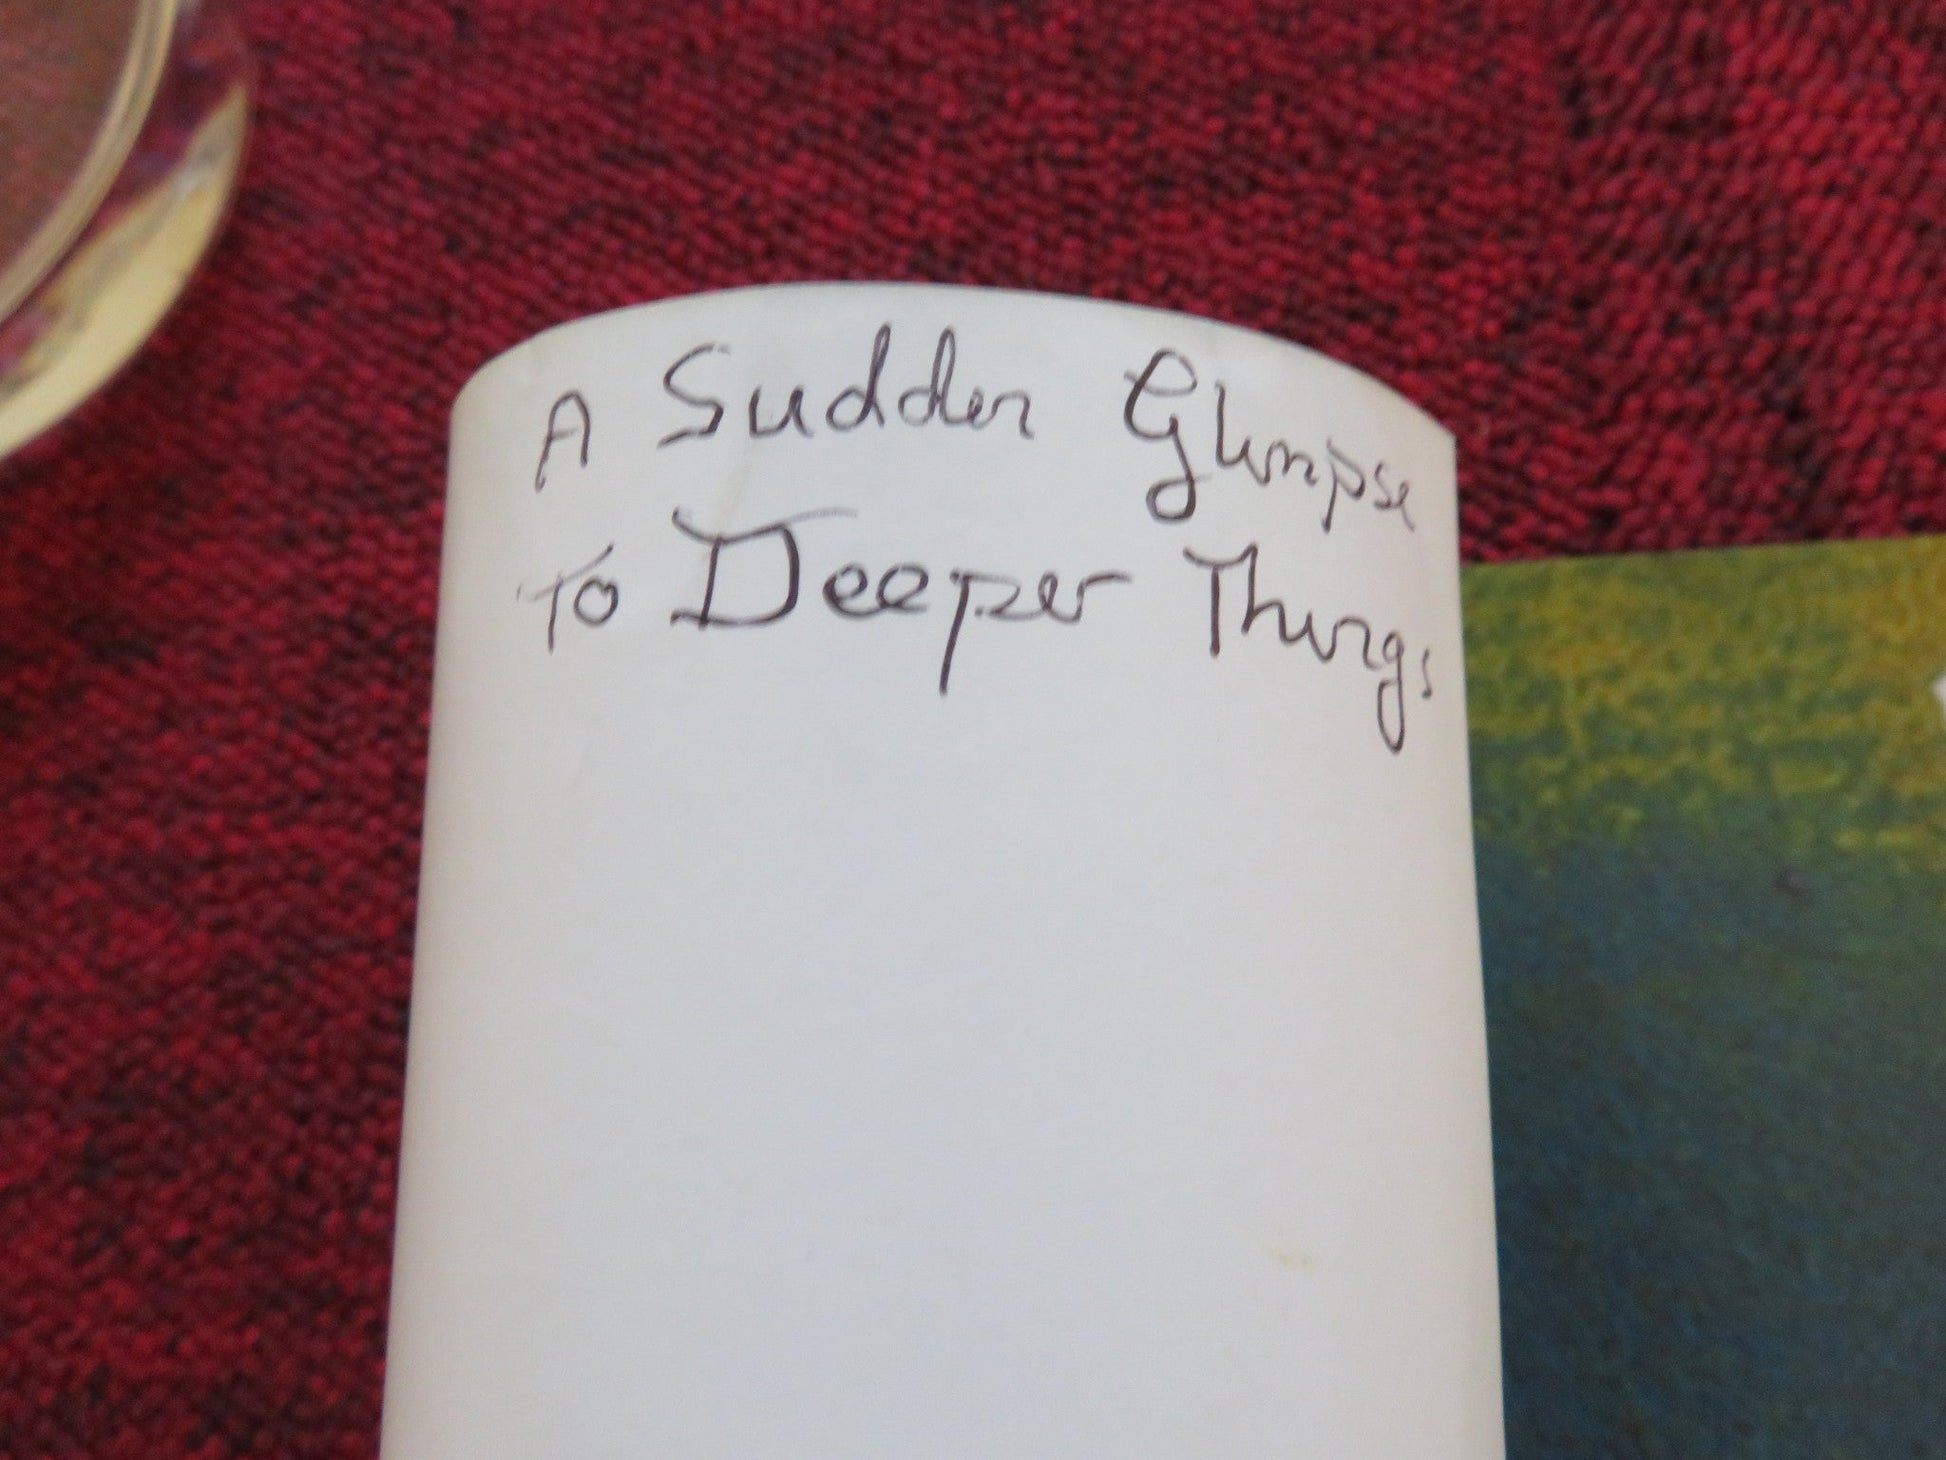 A Sudden Glimpse
To Deeper Things